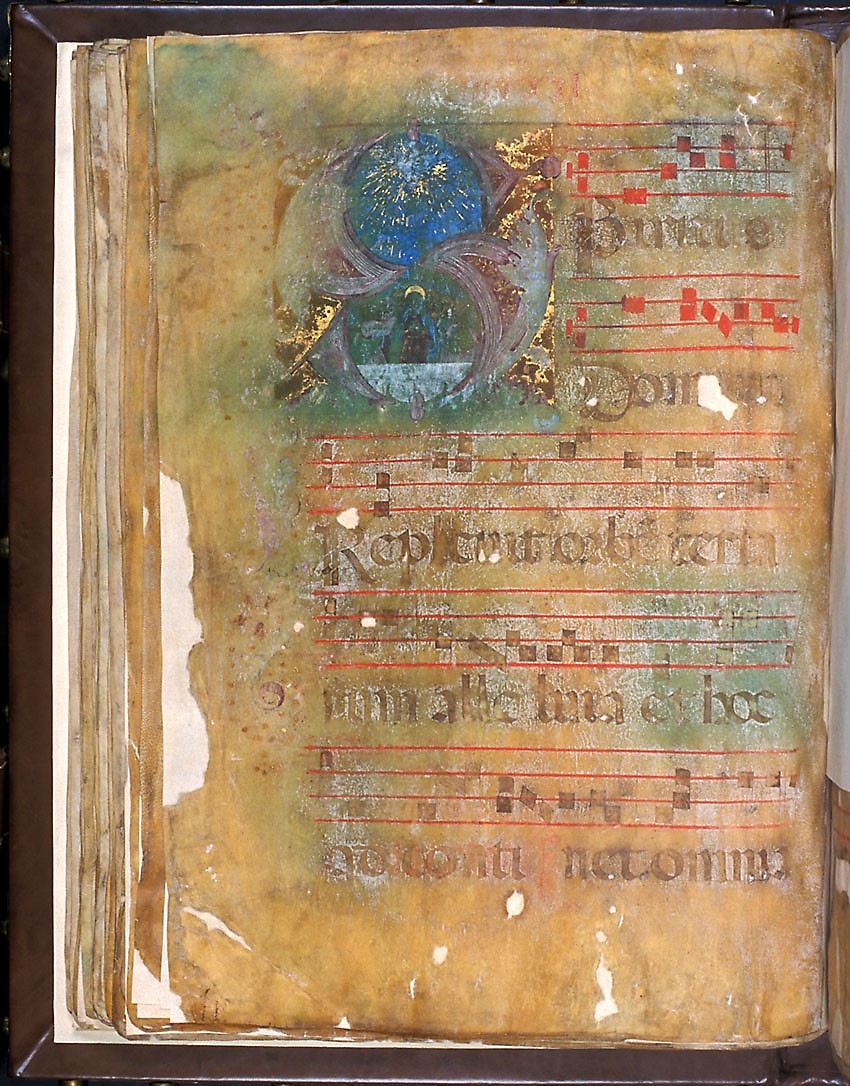 Spiritus
Domini
Repleuit orbē terra
rum alle luia et hoc
quod conti net omnia